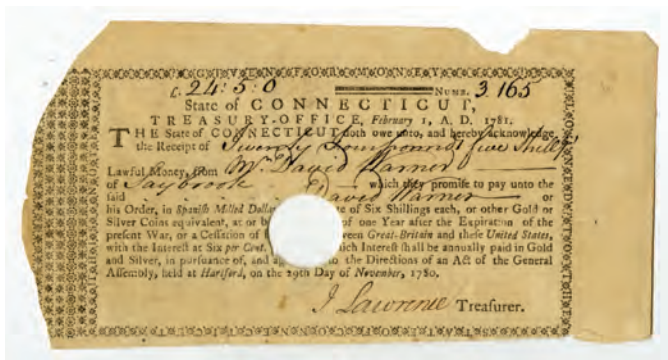 GIVEN FOR MONEY
£ 24: 5: 0 NUMB. 3165
State of CONNECTICUT,
TREASURY-OFFICE, February 1, A. D. 1781.
THE State of CONNECTICUT doth owe unto, and hereby acknowledge
the Receipt of Twenty four pounds five Shillgs
Lawful Money, from David Warner
of Saybrook which they promise to pay unto the
said David Warner or
his Order, in Spanish Milled Dolla of Six Shillings each, or other Gold or
Silver Coins equivalent, at or b of one Year after the Expiration of the
present War, or a Cessation of ween Great-Britain and these United States,
with the Interest at Six per Cent. ich Interest shall be annually paid in Gold
and Silver, in pursuance of, and to the Directions of an Act of the General
Assembly, held at Hartford, on the 29th Day of November, 1780.
J Lawrence Treasurer.